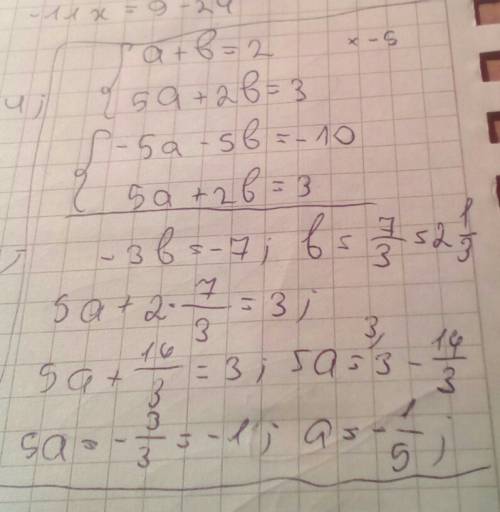 -11x = 9-24
4; { a+b=2 x-5
5a+2b=3
{ -5a-5b=-10
5a+2b=3
-3b=-7; b=7/3=2 1/3
5a+2·7/3=3;
5a+14/3=3; 5a=3-14/3
3,
5a=-3/3=-1; a=-1/5;